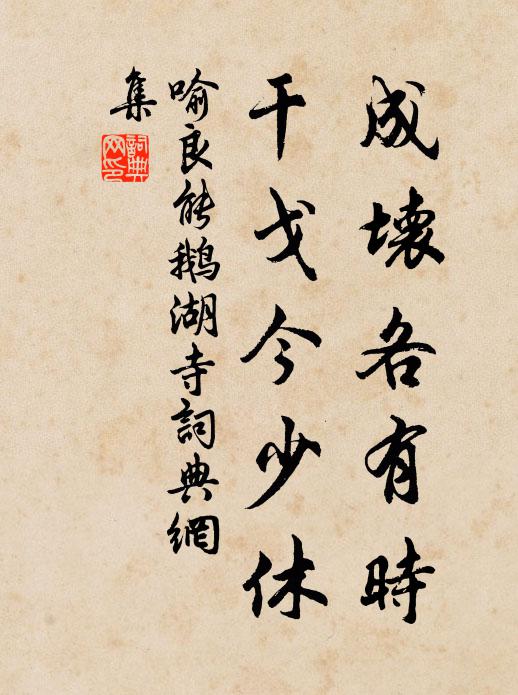 成壞各有時
干戈今少休
喻良能鵝湖寺詞典網
集
詞典
网印